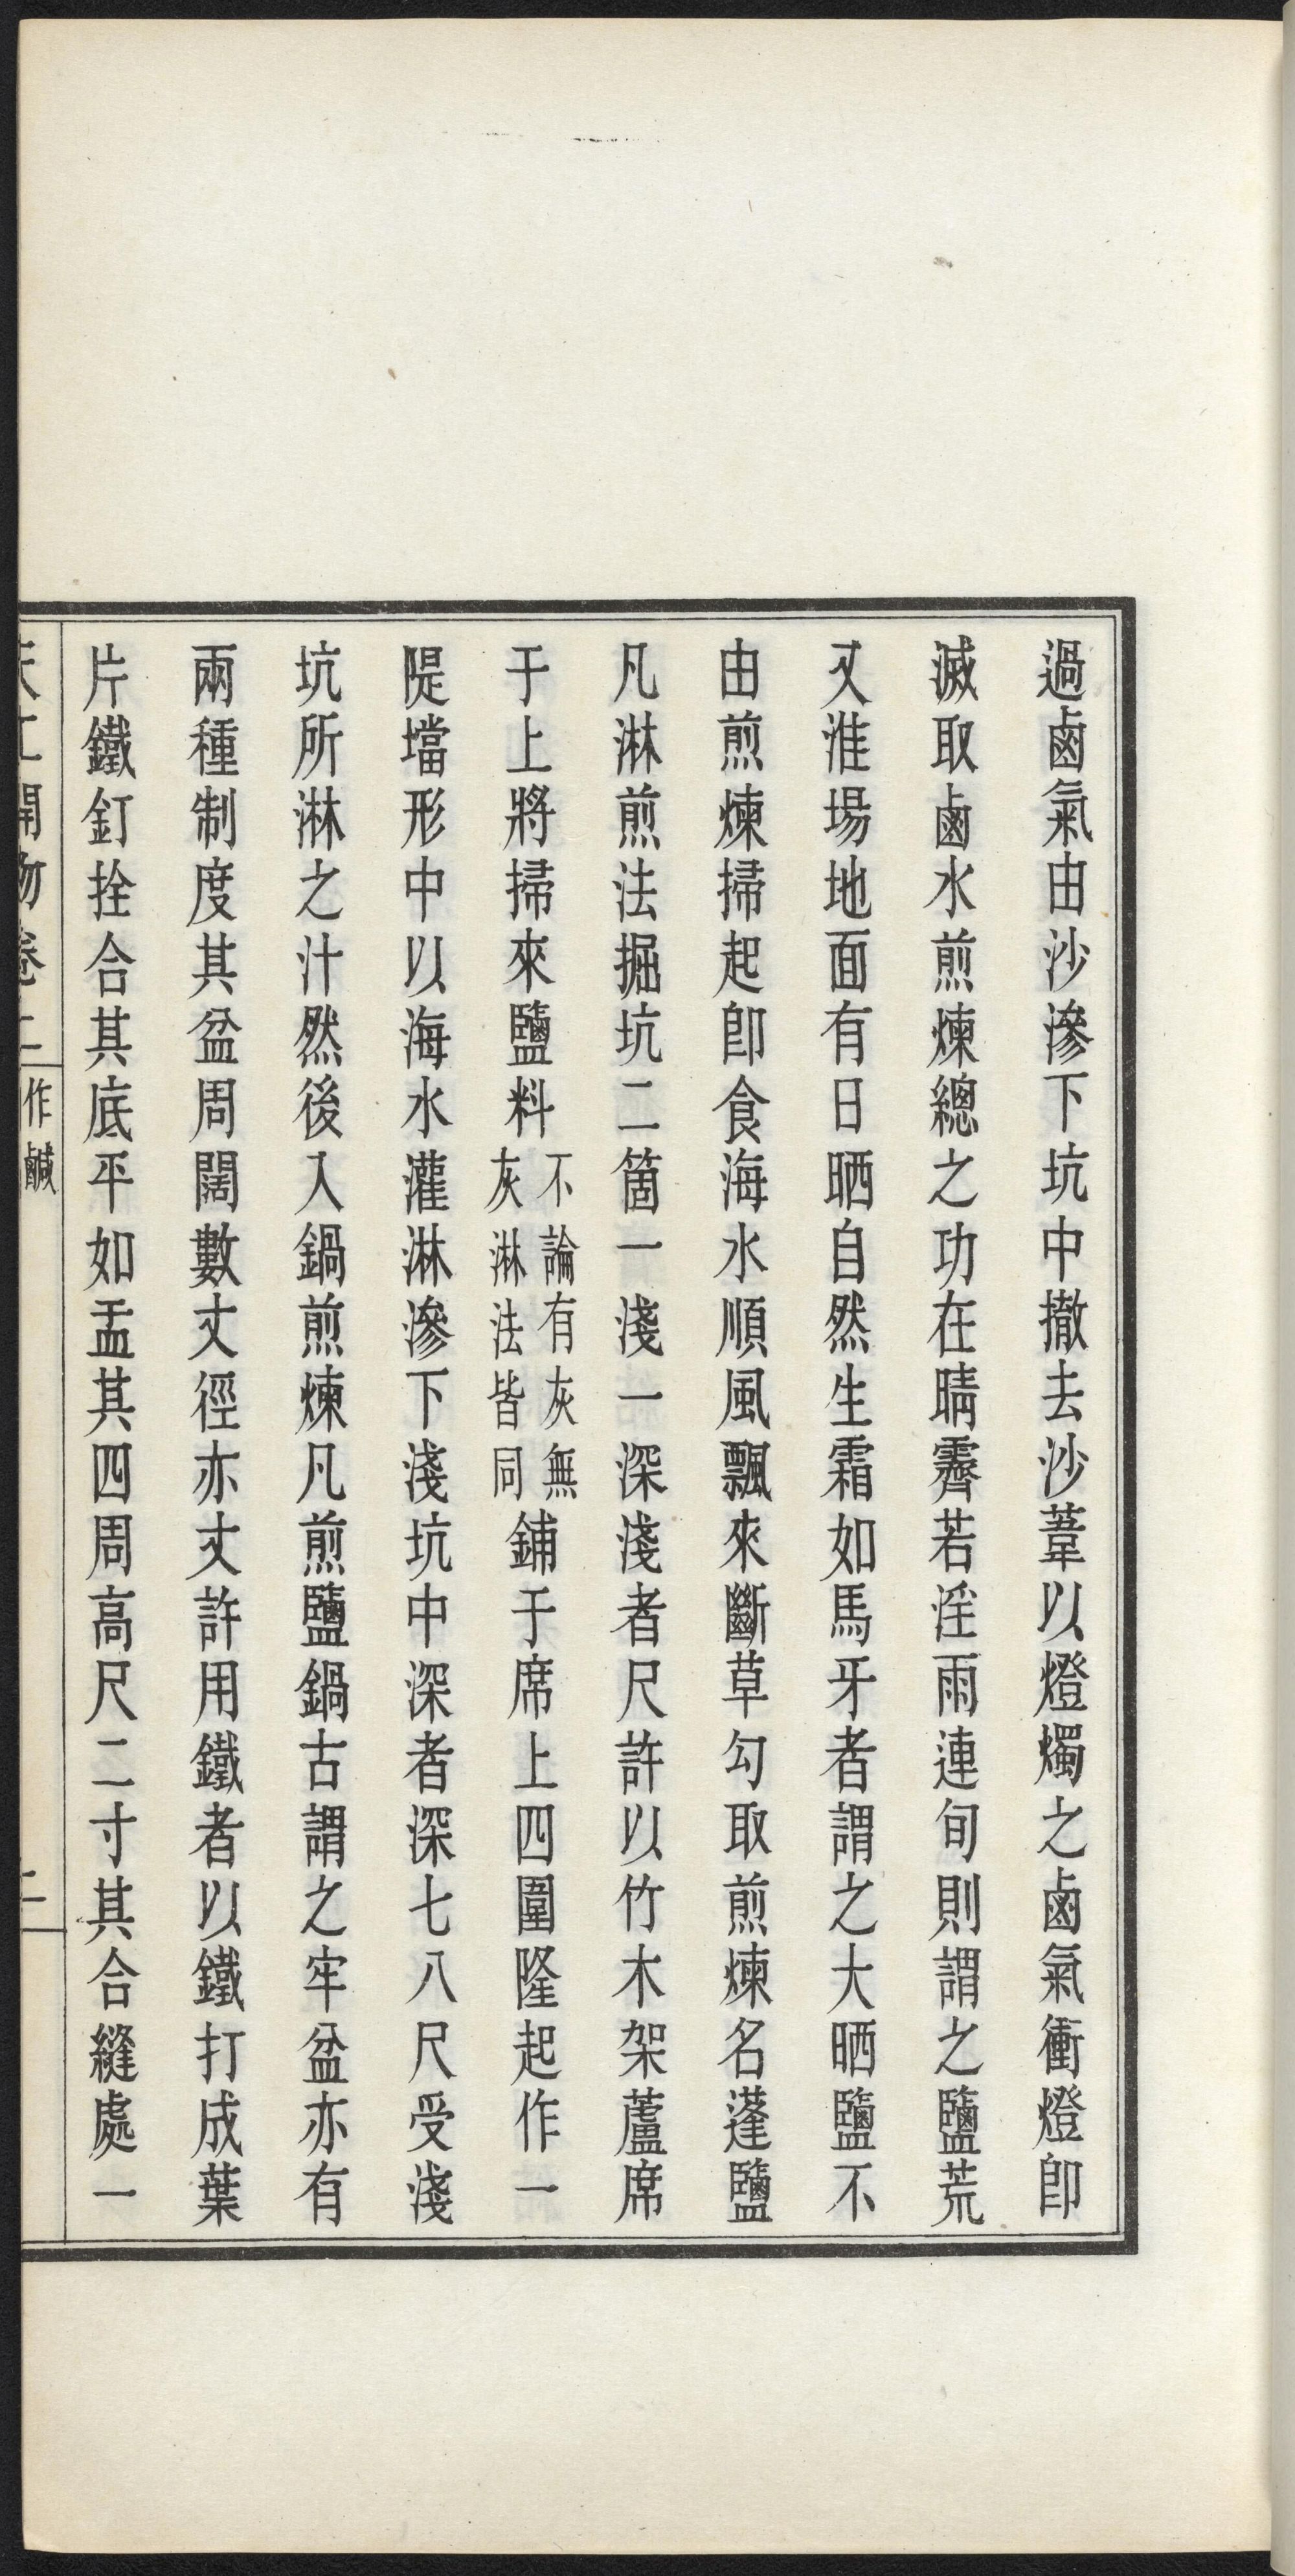 過鹵氣由沙滲下坑中撤去沙葦以燈燭之鹵氣衝燈卽
滅取鹵水煎煉總之功在晴霽若淫雨連旬則謂之鹽荒
又淮場地面有日晒自然生霜如馬牙者謂之大晒鹽不
由煎煉掃起卽食海水順風飄來斷草勾取煎煉名蓬鹽
凡淋煎法掘坑二箇一淺一深淺者尺許以竹木架蘆席
于上將掃來鹽料不論有灰無灰淋法皆同鋪于席上四圍隆起作一
隄壋形中以海水灌淋滲下淺坑中深者深七八尺受淺
坑所淋之汁然後入鍋煎煉凡煎鹽鍋古謂之牢盆亦有
兩種制度其盆周闊數丈徑亦丈許用鐵者以鐵打成葉
片鐵釘拴合其底平如盂其四周高尺二寸其合縫處一
天工開物卷上 作鹹 二